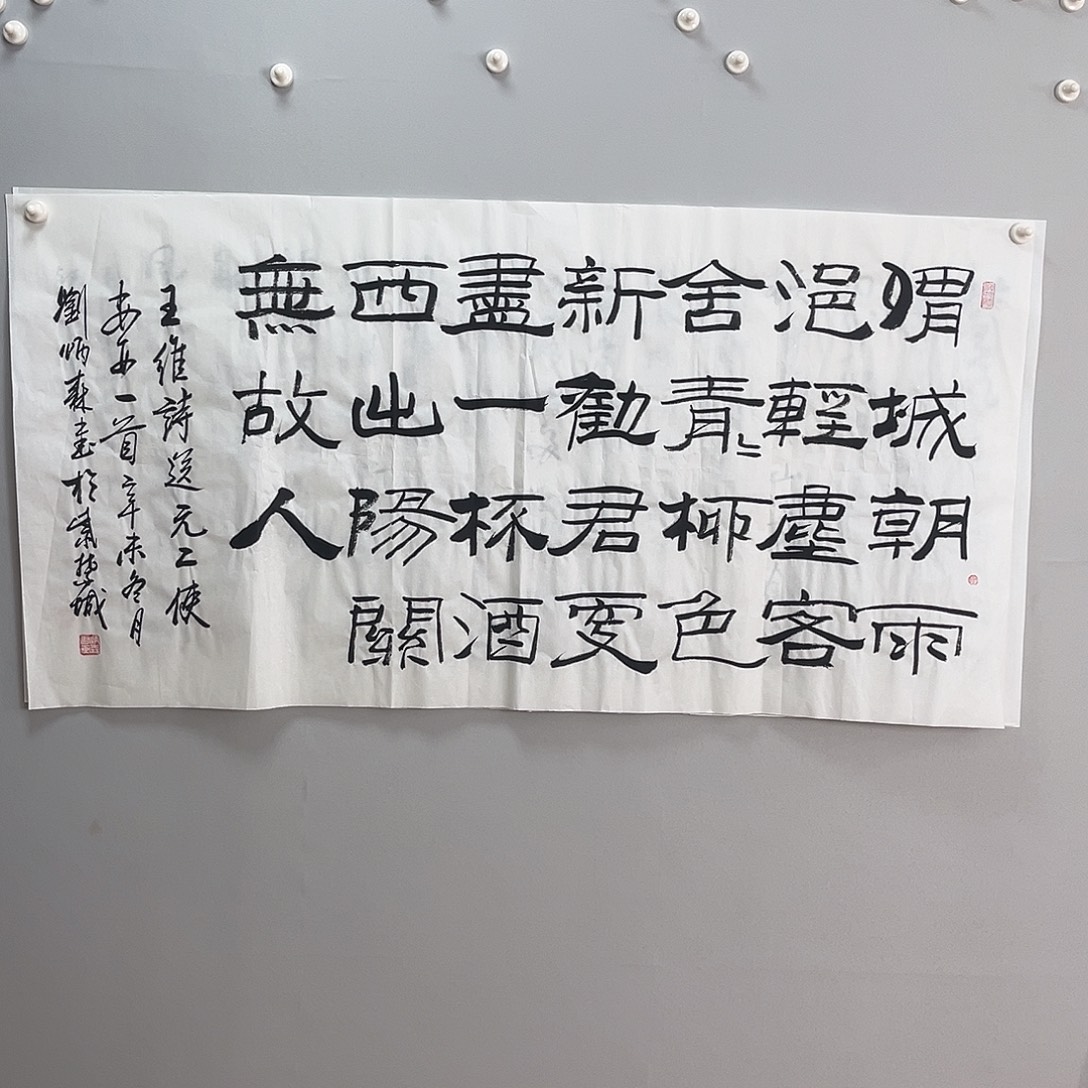 渭城朝雨
浥輕塵客
舍青〻柳色
新勸君更
盡一杯酒
西出陽關
無故人
王維詩送元二使
安西一首辛未冬月
劉炳森書於紫禁城